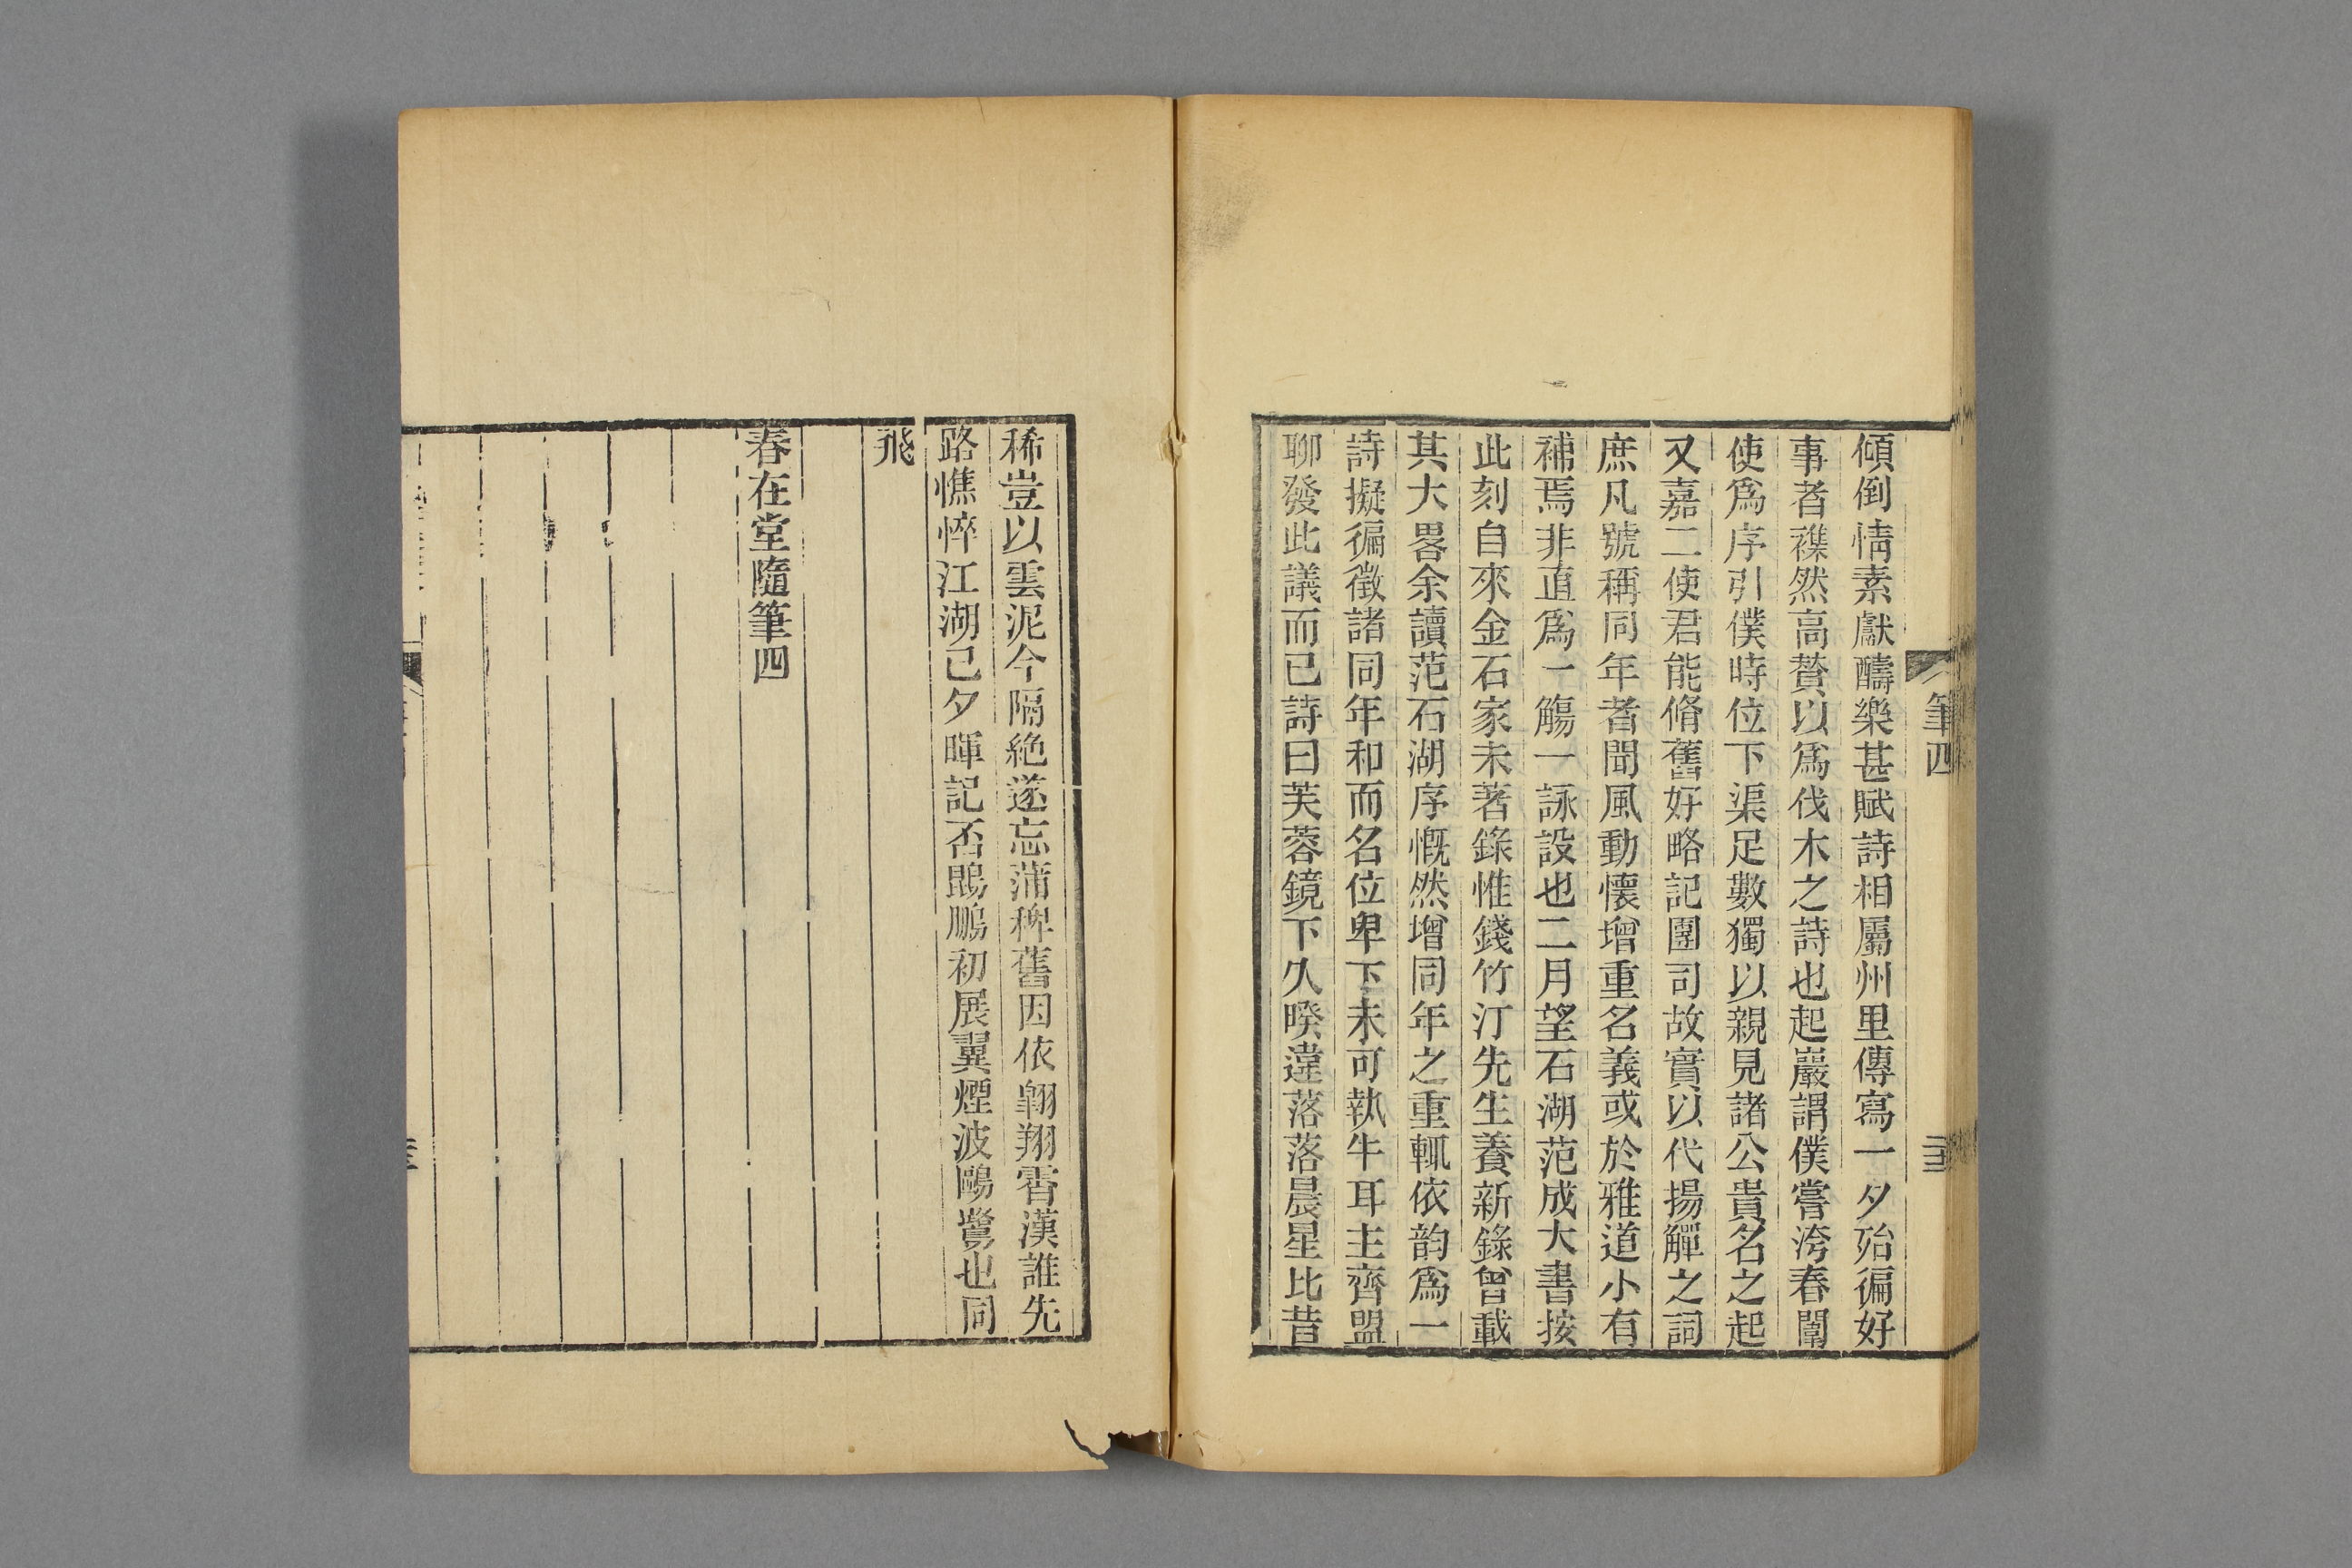 筆四
傾倒情素獻醻樂甚賦詩相屬州里傳寫一夕殆徧好
事者襍然高贊以爲伐木之詩也起巖謂僕嘗洿春闈
使爲序引僕時位下渠足數獨以親見諸公貴名之起
又嘉二使君能脩舊好略記團司故實以代揚觶之詞
庶凡號稱同年者聞風動懷增重名義或於雅道小有
補焉非直爲一觴一詠設也二月望石湖范成大書按
此刻自來金石家未著錄惟錢竹汀先生養新錄曾載
其大畧余讀范石湖序慨然增同年之重輒依韵爲一
詩擬徧徵諸同年和而名位卑下未可執牛耳主齊盟
聊發此議而已詩曰芙蓉鏡下久暌違落落晨星比昔
稀豈以雲泥今隔絶遂忘蒲稗舊因依翺翔霄漢誰先
路憔悴江湖已夕暉記否鵾鵬初展翼煙波鷗鷺也同
飛
春在堂隨筆四